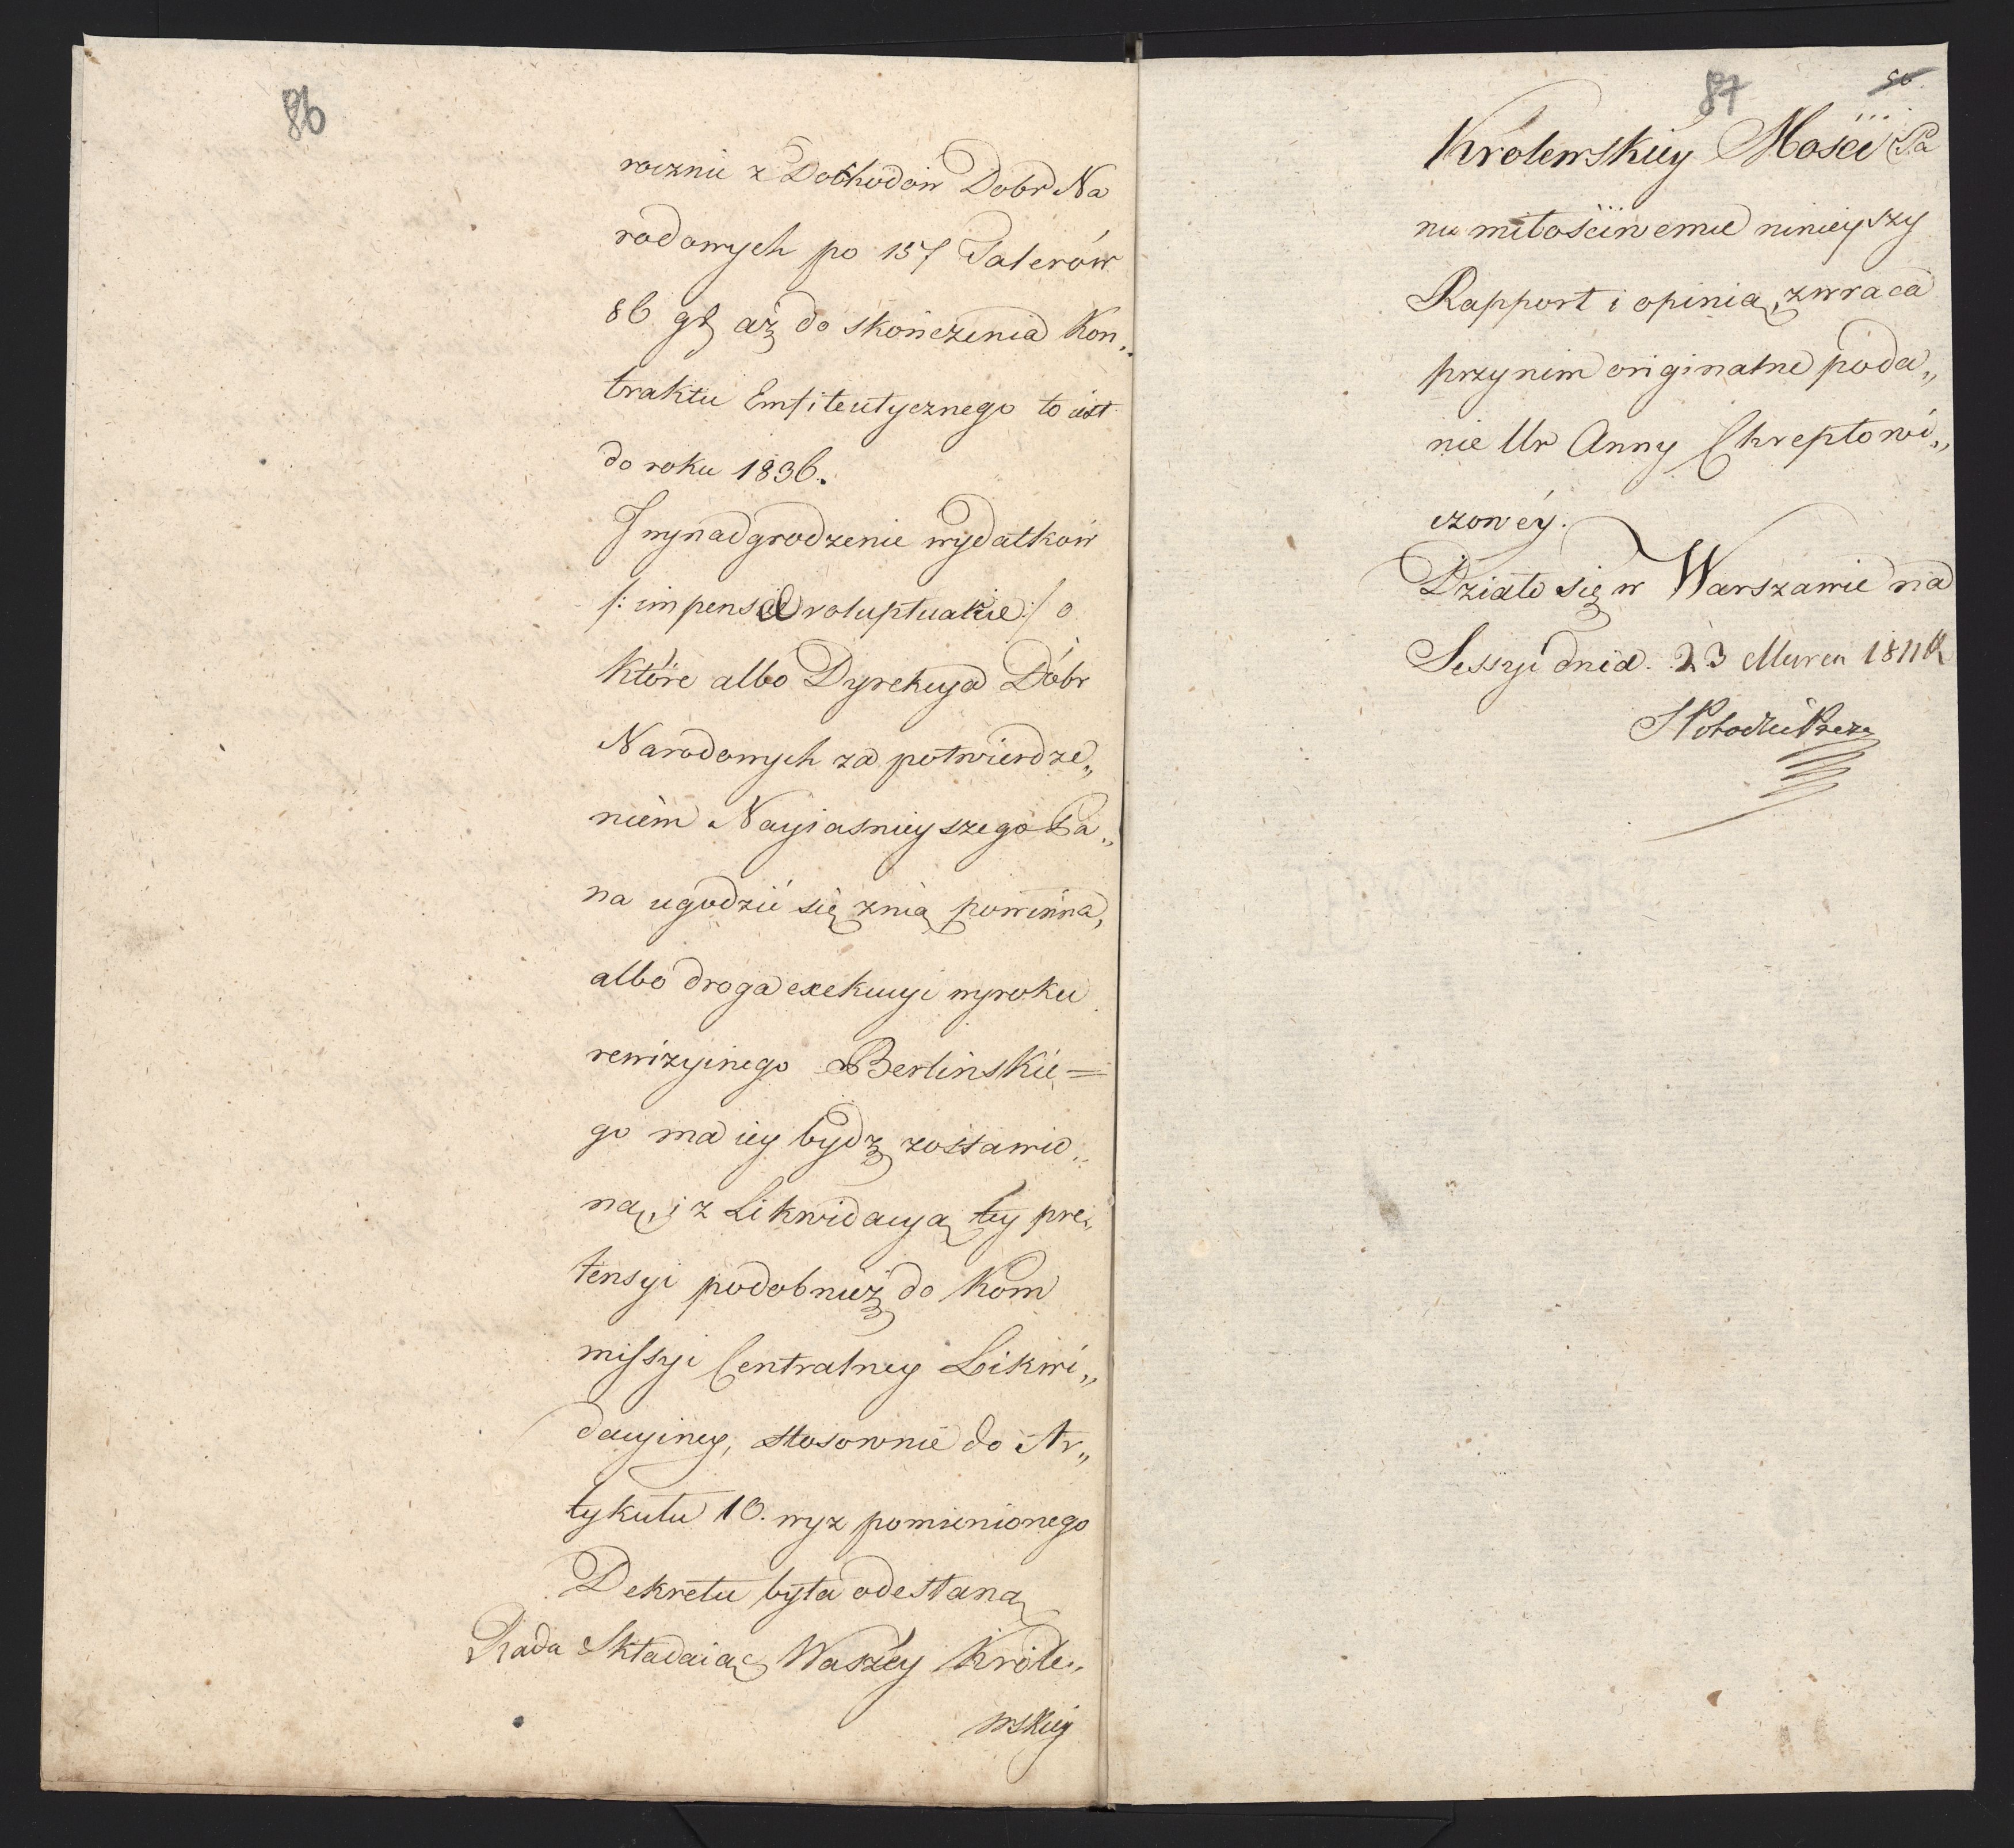 86
rocznie z Dochodów Dobr Na
rodowych po 157 Talerów
86 gł aż do skończenia Kon„
traktu Emfiteutycznego to iest
do roku 1836.
I wynadgrodzenie wydatków
/: impensae voluptuariae :/ o
które albo Dyrekcya Dóbr
Narodowych za potwierdze„
niem Nayiasnieyszego Pa„
na ugodzić się znią powinna,
albo droga exekucyi wyroku
rewizyinego Berlinskie=
go ma iey bydź zostawio„
ną, i z Likwidacyą tey pre„
tensyi podobnież do Kom
missyi Centralney Likwi„
dacyiney, stosownie do Ar„
tykułu 10. wyz pomienionego
Dekretu była odesłaną
Rada Składaiąc Waszey Króle„
wskiey
87
Królewskiey Mości Pa
nu miłościwemu ninieyszy
Rapport i opinią, zwraca
przynim originalne poda„
nie Ur Anny Chreptowi„
czowéy.
Działo się w Warszawie na
Sessyi dnia 23 Marca 1811 R
S Potocki Prezes